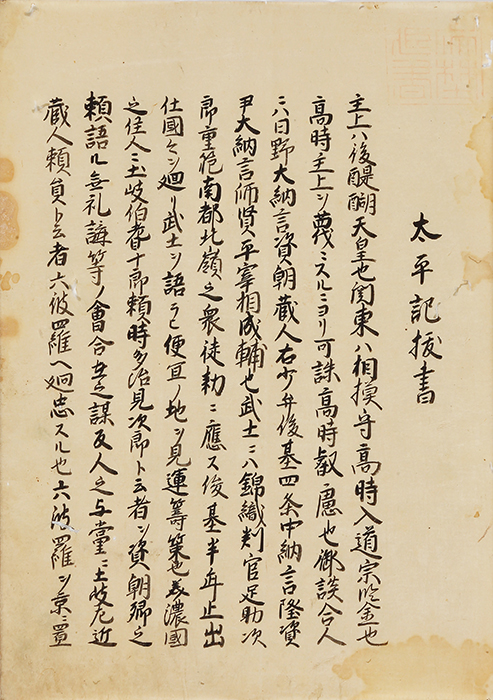 太平記抜書
主上ハ後醍醐天皇也関東ハ相摸守高時入道宗鑒也
高時主上ヲ蔑ミスルニヨリ可誅高時叡慮也御談合人
ニハ日野大納言資朝蔵人右少弁俊基四条中納言隆資
尹大納言師賢平宰相成輔也武士ニハ錦織判官足助次
郎重範南都北嶺之衆徒勅ニ應ス俊基半年止出
仕國々ヲ廻リ武士ヲ語ラヒ便宜ノ地ヲ見運籌策也美濃國
之住人ニ土岐伯耆十郎頼時多治見次郎ト云者ヲ資朝卿之
頼語ル無礼講等ノ會合在之謀反人之与黨ニ土岐左近
蔵人頼員ト云者六波羅ヘ廻忠スル也六波羅ヲ京ニ置